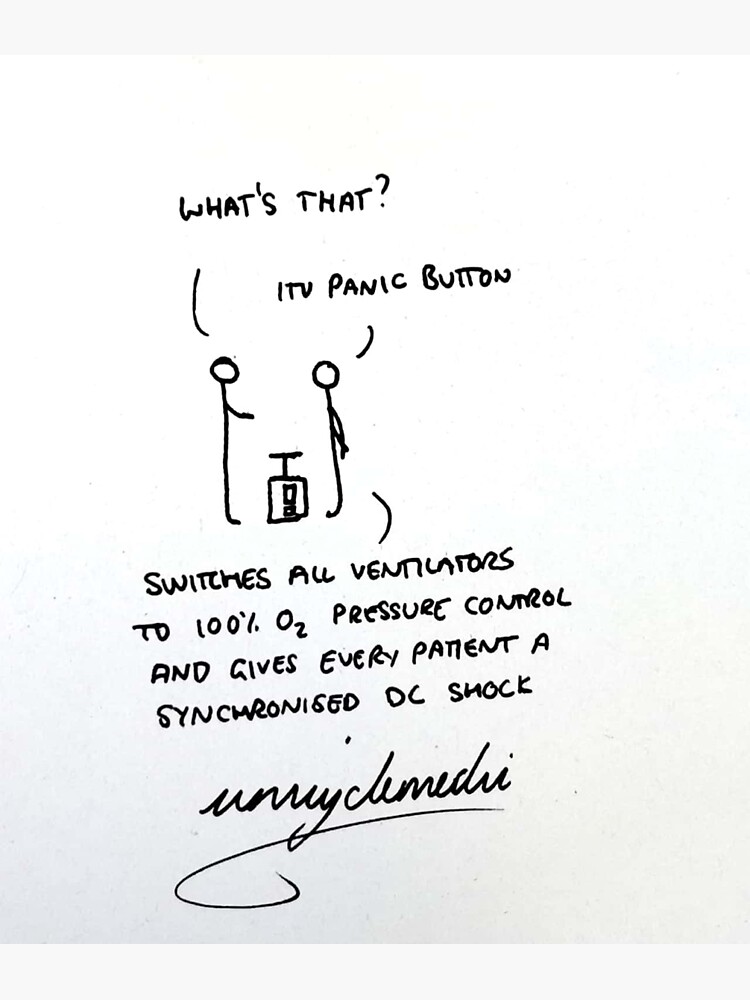 WHAT'S THAT?
ITU PANIC BUTTON
SWITCHES ALL VENTILATORS
TO 100% O₂ PRESSURE CONTROL
AND GIVES EVERY PATIENT A
SYNCHRONISED DC SHOCK